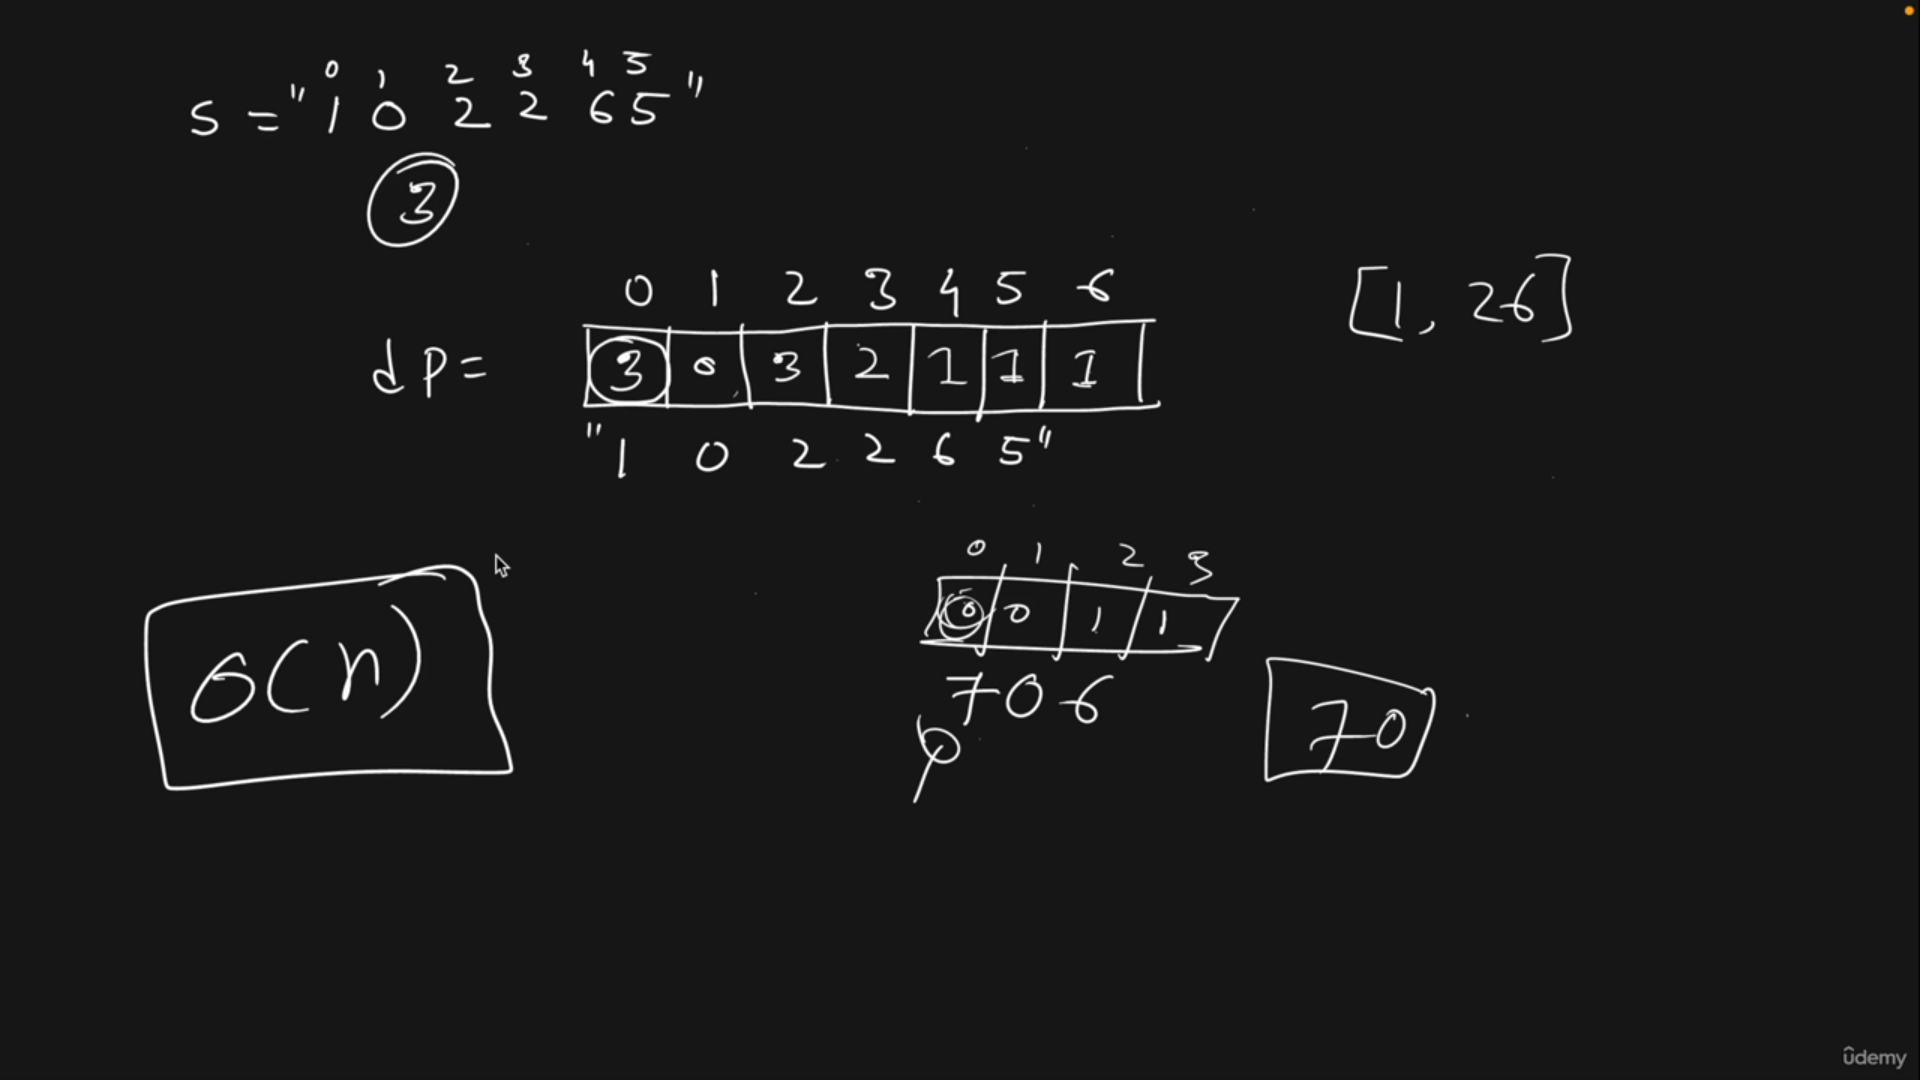 0 1 2 3 4 5
S = "1 0 2 2 6 5"
3
0 1 2 3 4 5 6
[1, 26]
dp= 3 0 3 2 1 1 1
"1 0 2 2 6 5"
0 1 2 3
0 0 1 1
O(n)
7 0 6
70
udemy